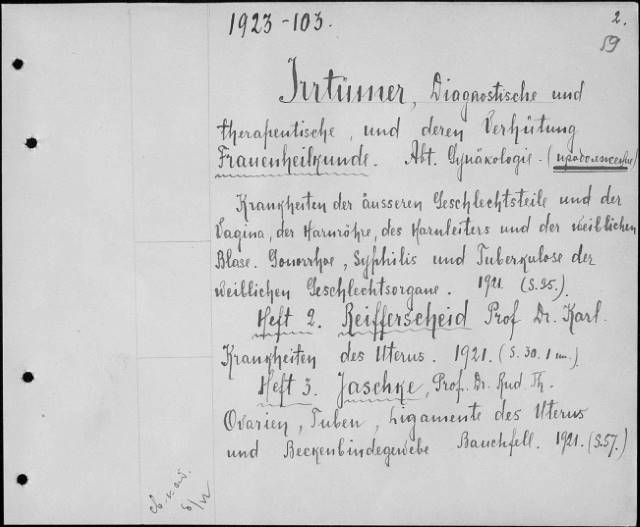 1923-103.
2.
59
Irrtümer, Diagnostische und
therapeutische, und deren Verhütung
Frauenheilkunde. Abt. Gynäkologie - (продолжение)
Krankheiten der äusseren Geschlechtsteile und der
Vagina, der Harnröhre, des Harnleiters und der weiblichen
Blase. Gonorrhoe, Syphilis und Tuberkulose der
weiblichen Geschlechtsorgane. 1921. (S.95.).
Heft 2. Reifferscheid Prof Dr. Karl.
Krankheiten des Uterus. 1921. (S. 30. 1 нм.).
Heft 3. Jaschke, Prof. Dr. Rud. Th.
Ovarien, Tuben, Ligamente des Uterus
und Beckenbindegewebe Bauchfell. 1921. (S.57.)